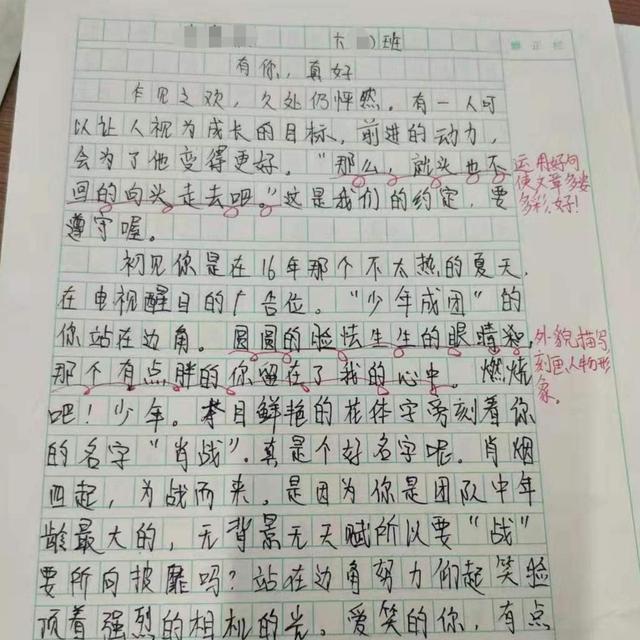 六 班
有你，真好
乍见之欢，久处仍怦然。有一人可
以让人视为成长的目标，前进的动力，
会为了他变得更好。“那么，就头也不
回的向头走去吧。”这是我们的约定，要
遵守喔。
初见你是在16年那个不太热的夏天，
在电视醒目的广告位。“少年成团”的
你站在边角。圆圆的脸怯生生的眼睛和
那个有点胖的你留在了我的心中。燃烧
吧！少年。夺目鲜艳的花体字旁刻着你
的名字“肖战”。真是个好名字呢。肖烟
四起，为战而来。是因为你是团队中年
龄最大的，无背景无天赋所以要“战”
要所向披靡吗？站在边角努力仰起笑脸
顶着强烈的相机的光。爱笑的你，有点
运用好句
使文章多姿
多彩，好！
外貌描写
刻画人物形
象。